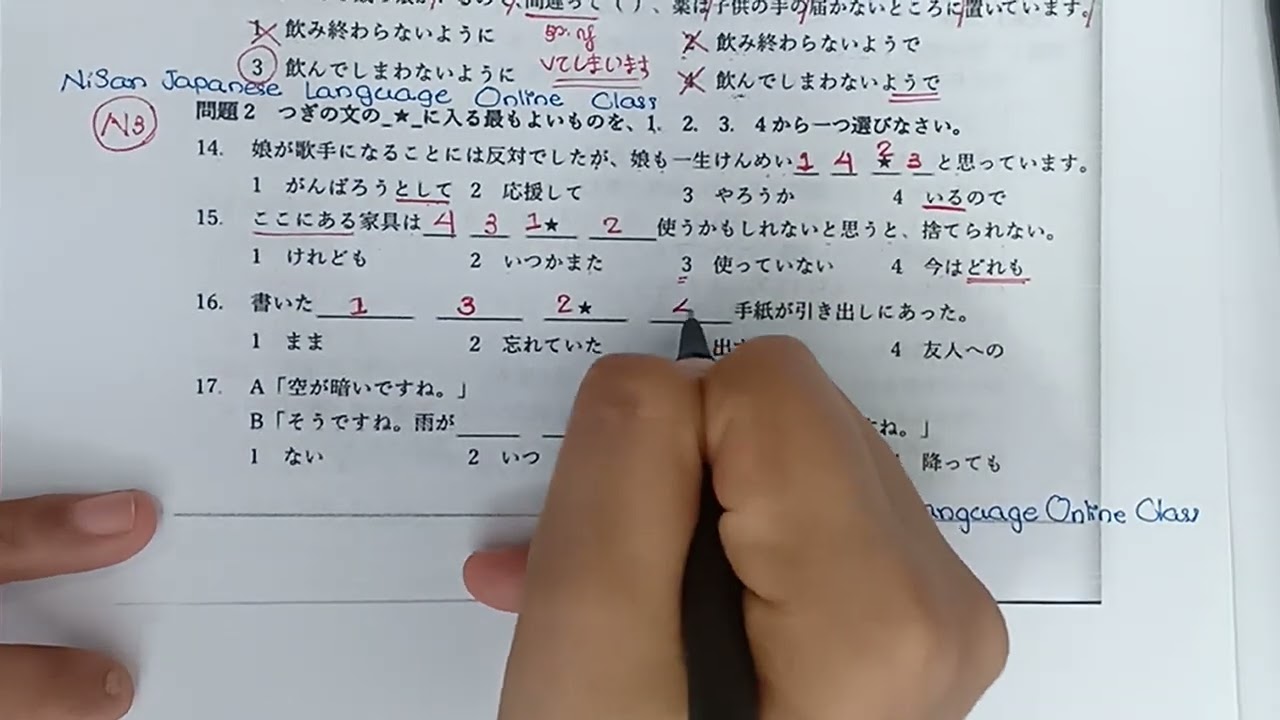 間違って( )、薬は子供の手の届かないところに置いています。
1 飲み終わらないように 2 飲み終わらないようで
3 飲んでしまわないように てしまいます 4 飲んでしまわないようで
NiSan Japanese Language Online Class
N3
問題2 つぎの文の_★_に入る最もよいものを、1. 2. 3. 4から一つ選びなさい。
14. 娘が歌手になることには反対でしたが、娘も一生けんめい 1 4 2★ 3 と思っています。
1 がんばろうとして 2 応援して 3 やろうか 4 いるので
15. ここにある家具は 4 3 1★ 2 使うかもしれないと思うと、捨てられない。
1 けれども 2 いつかまた 3 使っていない 4 今はどれも
16. 書いた 1 3 2★ 手紙が引き出しにあった。
1 まま 2 忘れていた 4 友人への
17. A「空が暗いですね。」
B「そうですね。雨が____ ね。」
1 ない 2 いつ 降っても
Language Online Class